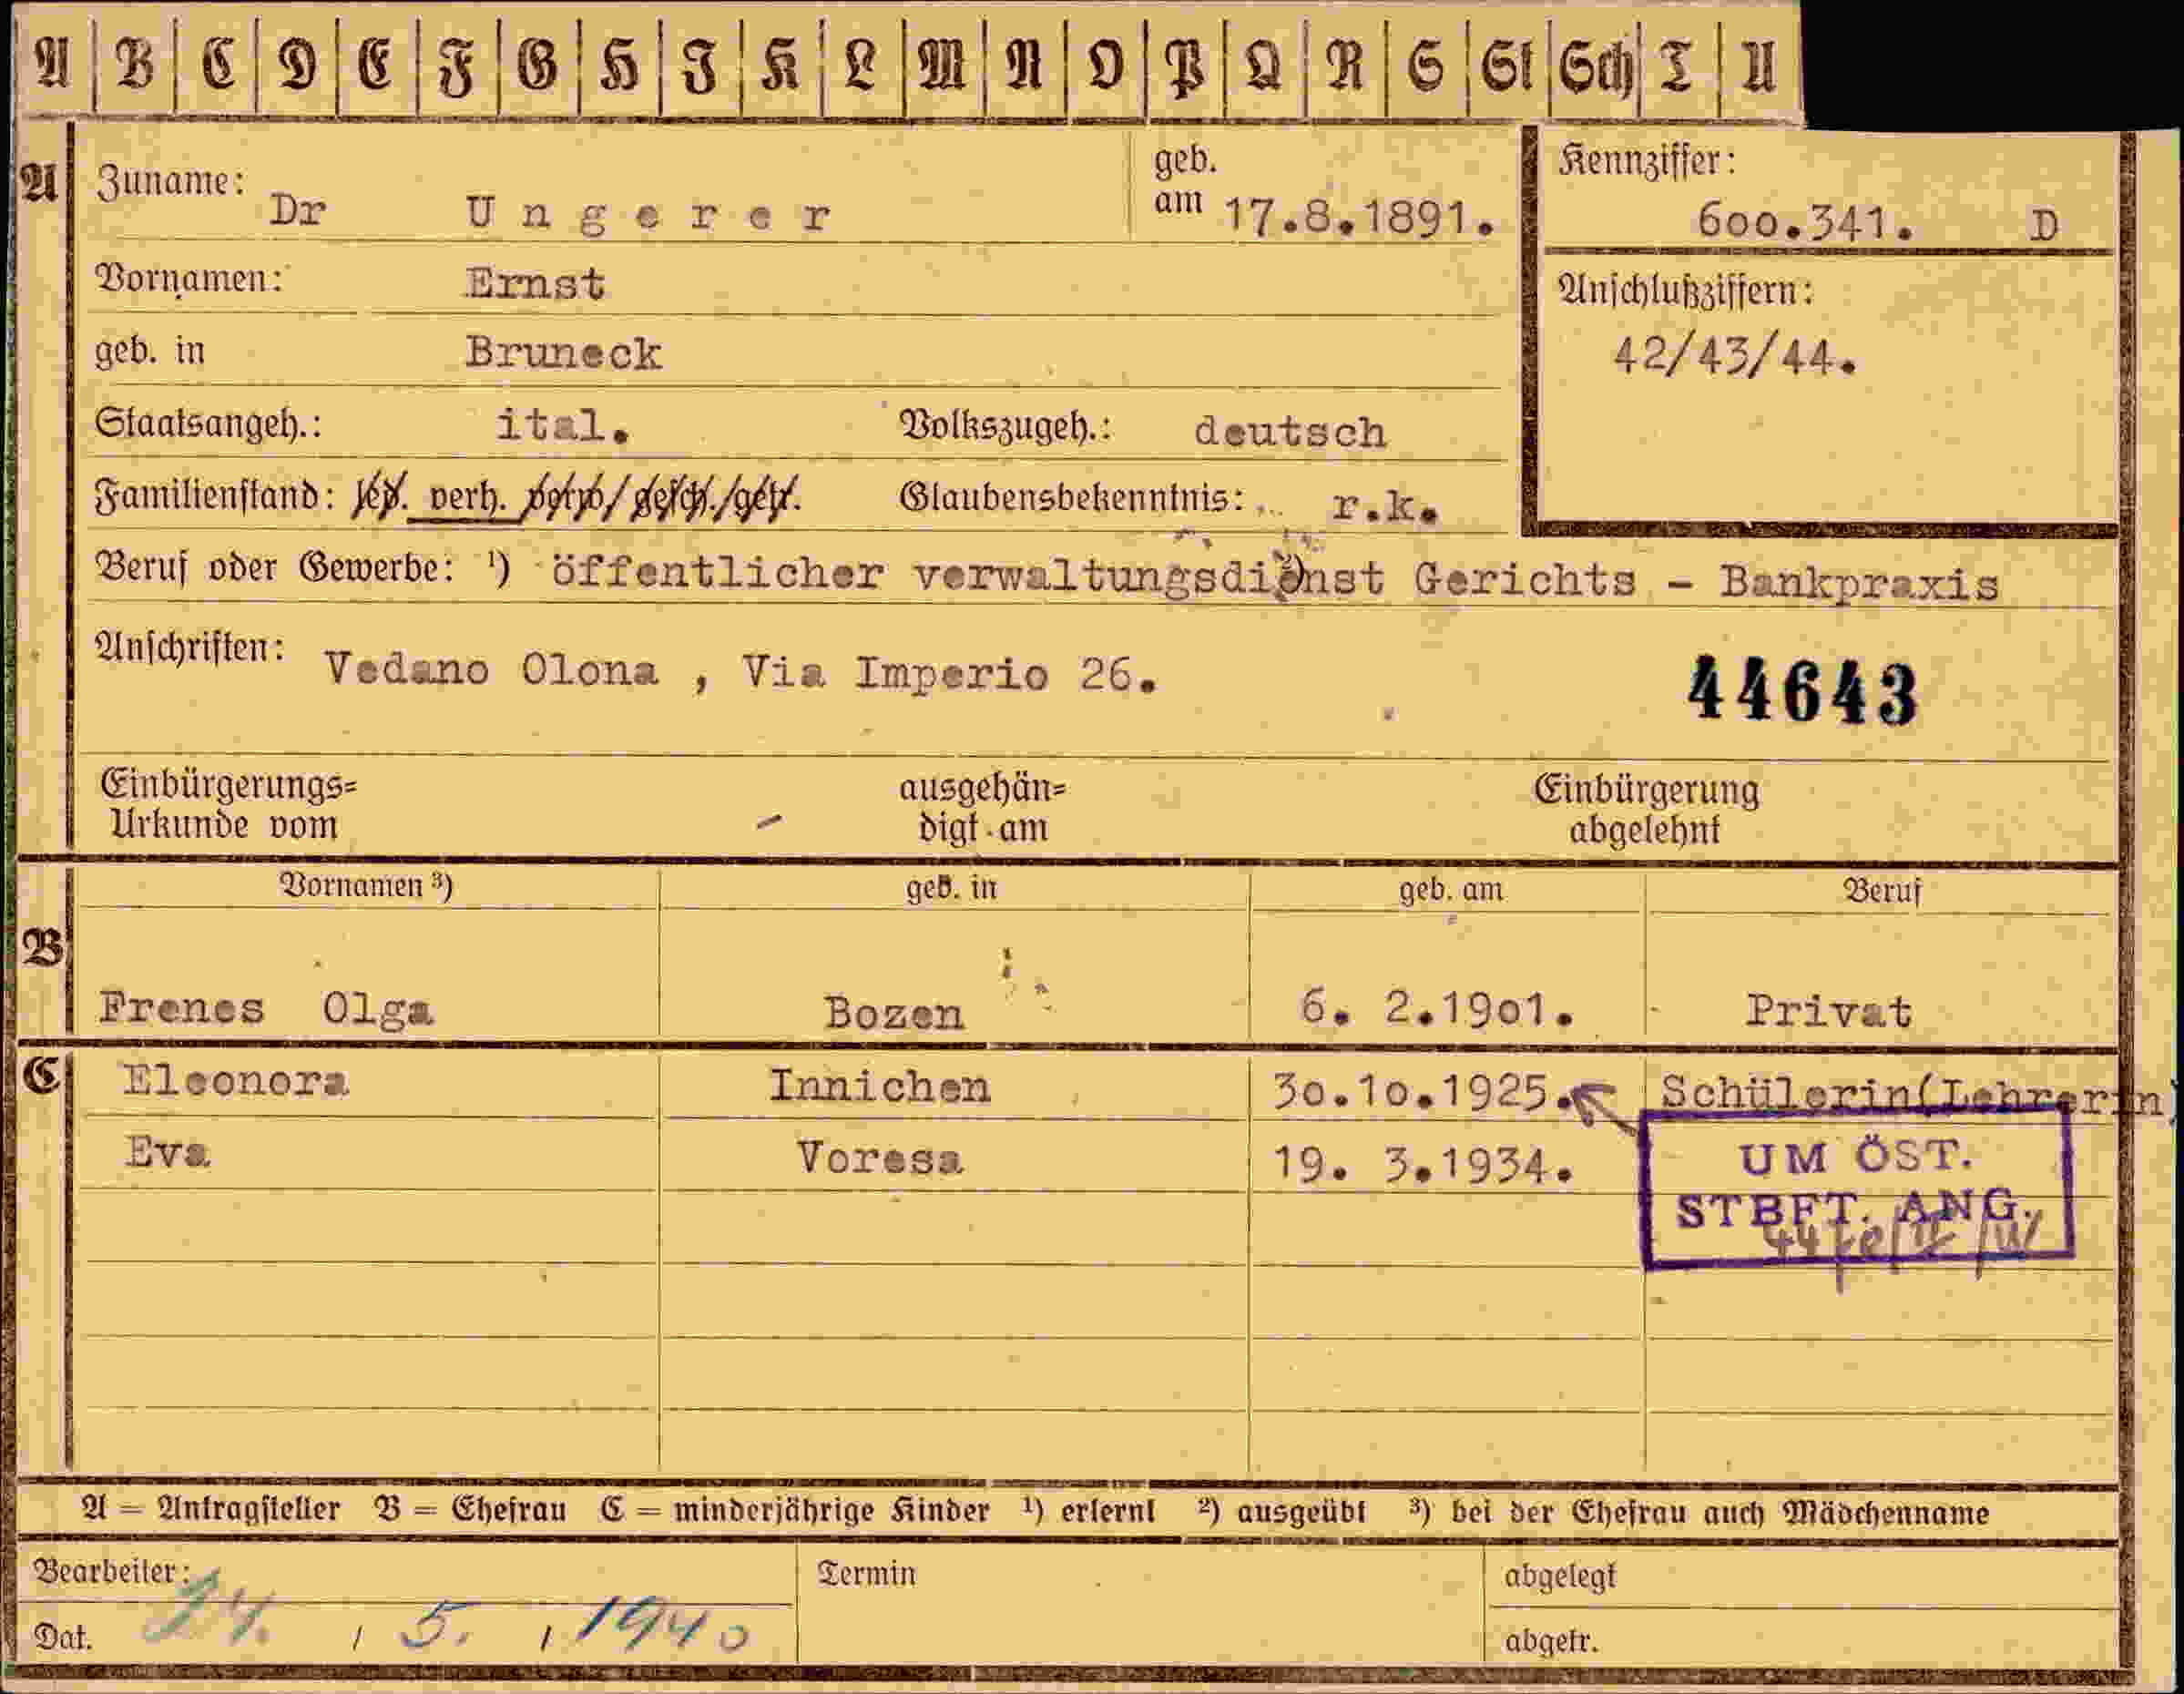 A B C D E F G H I K L M N O P Q R S St Sch T U
A
Zuname: Dr Ungerer
geb. am 17.8.1891.
Kennziffer:
600.341. D
Vornamen: Ernst
Anschlußziffern:
42/43/44.
geb. in Bruneck
Staatsangeh.: ital. Volkszugeh.: deutsch
Familienstand: led. verh. verw/gesch./getr. Glaubensbekenntnis: r.k.
Beruf oder Gewerbe: ¹) öffentlicher verwaltungsdienst Gerichts - Bankpraxis
Anschriften: Vedano Olona , Via Imperio 26.
44643
Einbürgerungs=
Urkunde vom -
ausgehän=
digt am
Einbürgerung
abgelehnt
Vornamen ³) geb. in geb. am Beruf
B
Frenes Olga Bozen 6. 2.1901. Privat
C
Eleonora Innichen 30.10.1925. Schülerin(Lehrerin)
Eva Voresa 19. 3.1934.
UM ÖST.
STBFT. ANG.
A = Antragsteller B = Ehefrau C = minderjährige Kinder ¹) erlernt ²) ausgeübt ³) bei der Ehefrau auch Mädchenname
Bearbeiter:
Termin
abgelegt
Dat. 24. / 5. / 1940
abgetr.